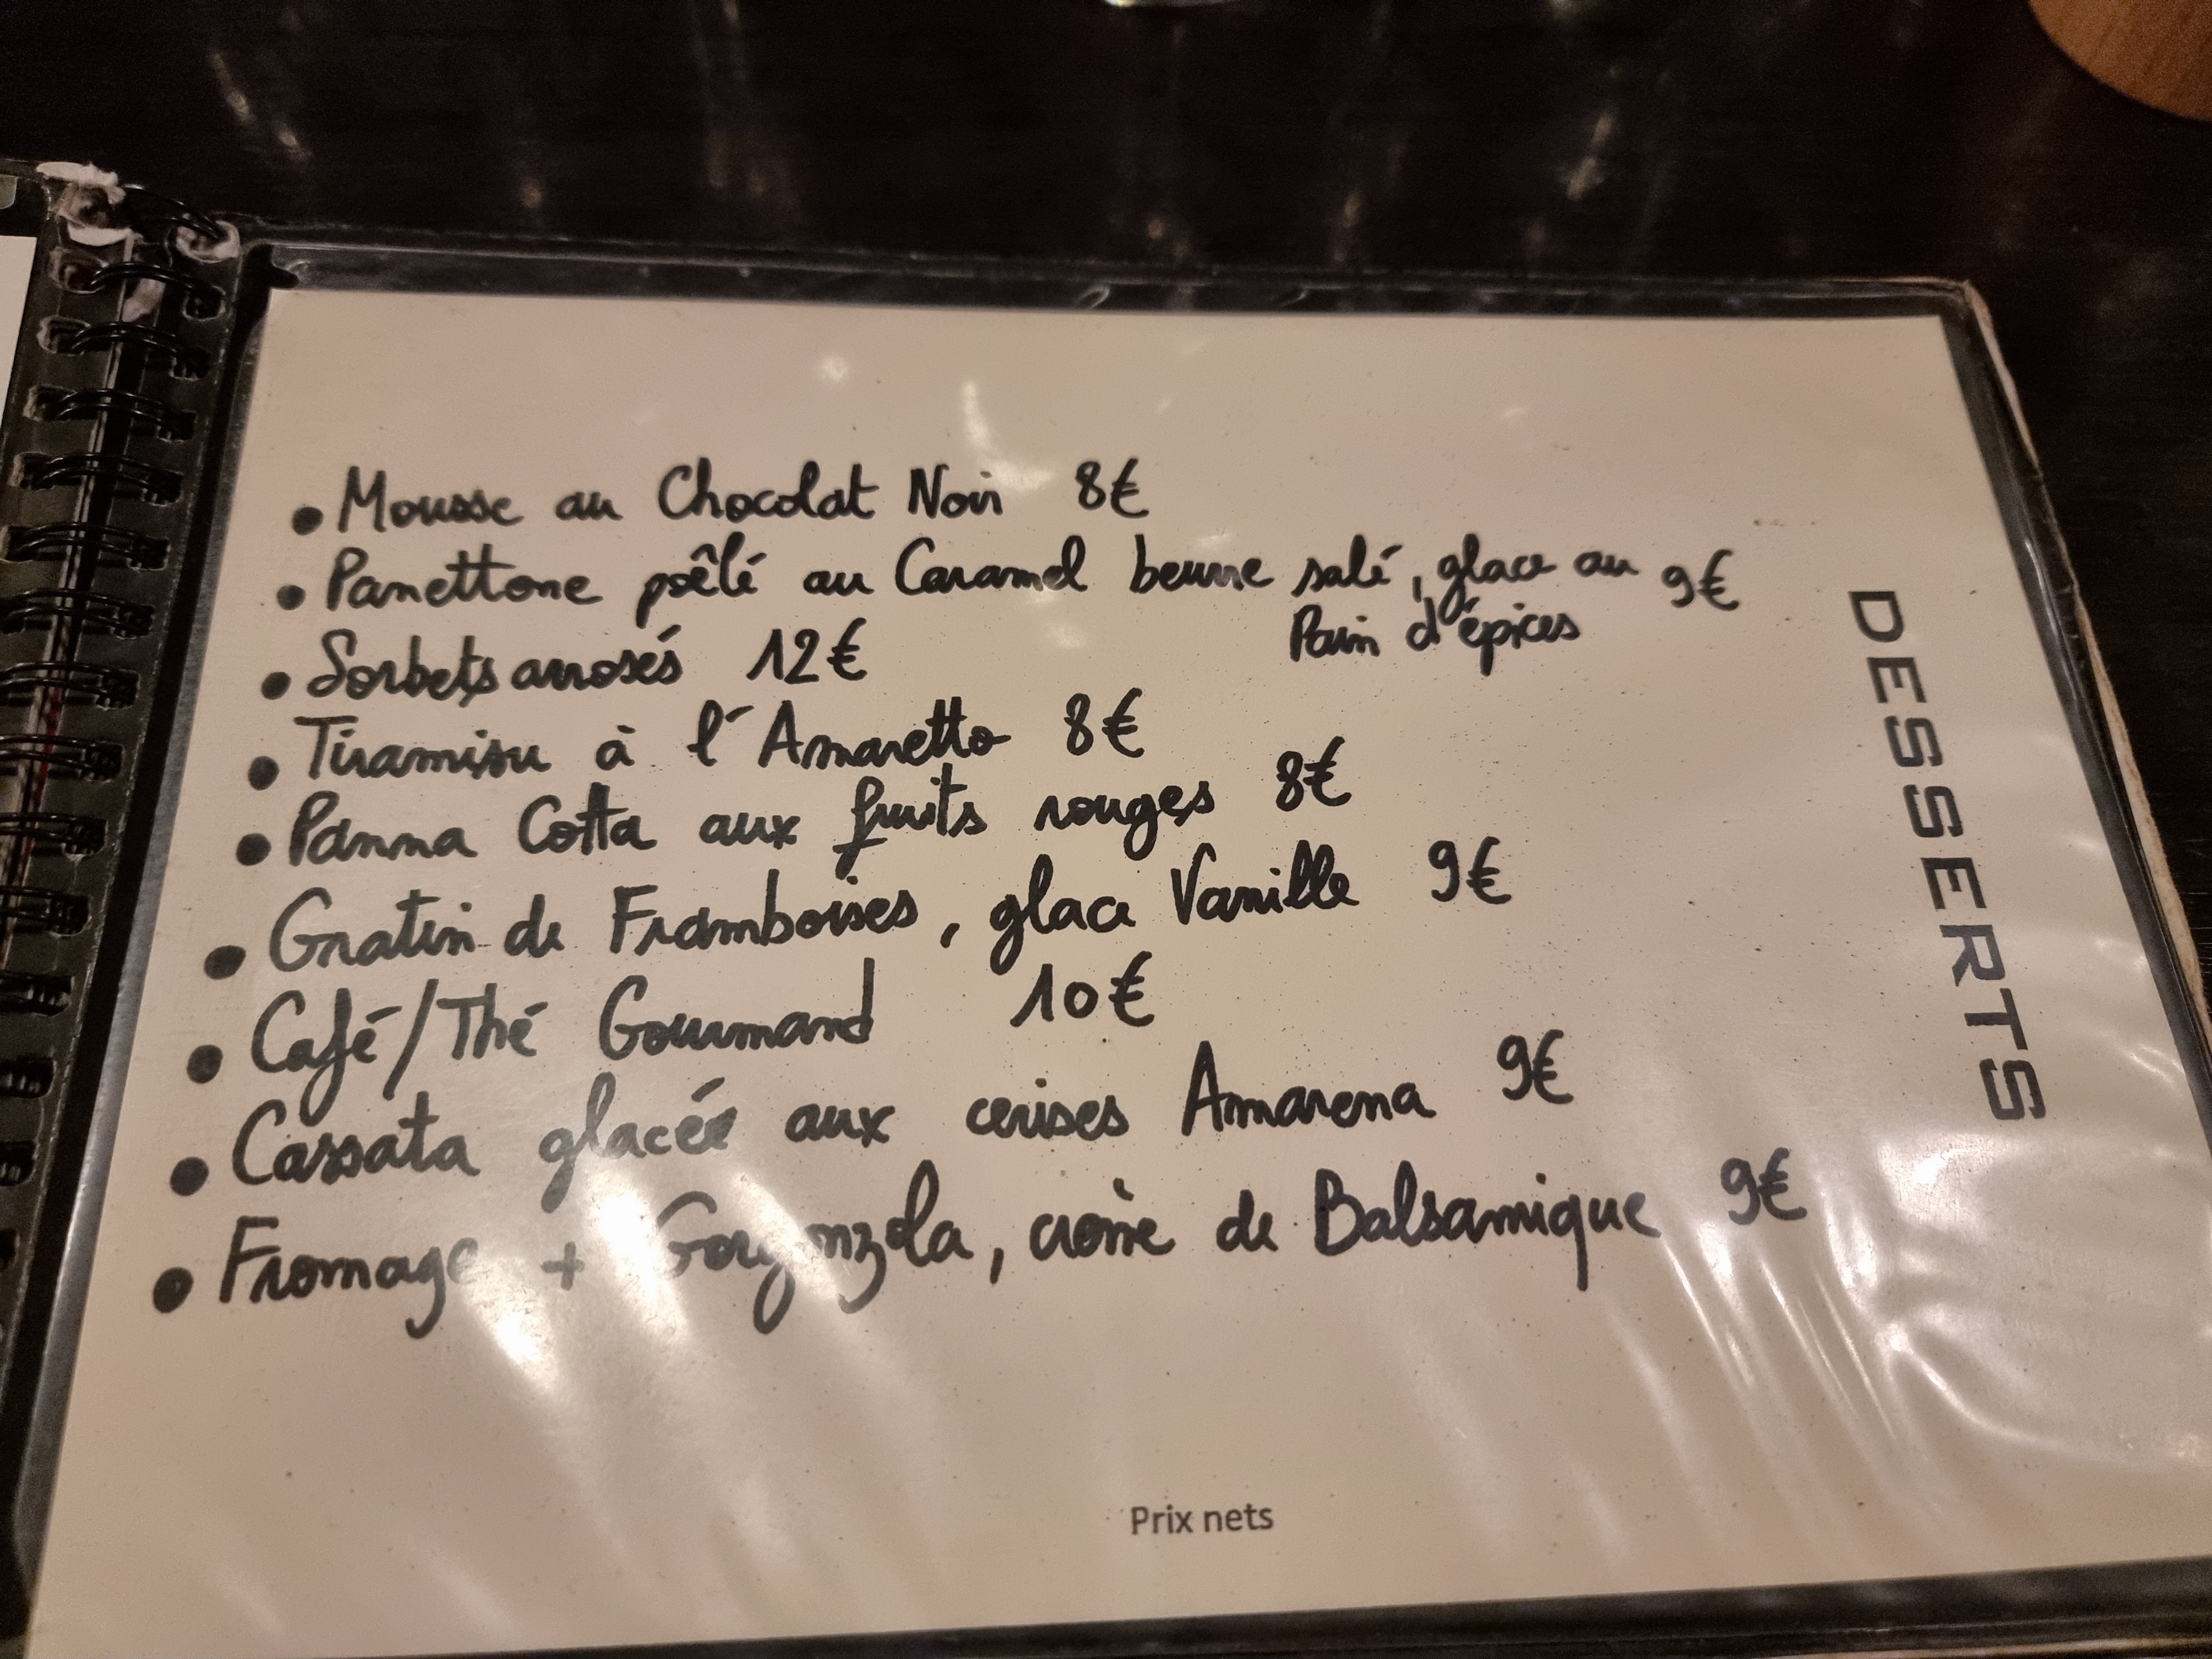 • Mousse au Chocolat Noir 8€
• Panettone poêlé au Caramel beurre salé, glace au 9€
Pain d'épices
• Sorbets arrosés 12€
• Tiramisu à l'Amaretto 8€
• Panna Cotta aux fruits rouges 8€
• Gratin de Framboises, glace Vanille 9€
• Café/Thé Gourmand 10€
• Cassata glacée aux cerises Amarena 9€
• Fromage + Gorgonzola, crème de Balsamique 9€
DESSERTS
Prix nets